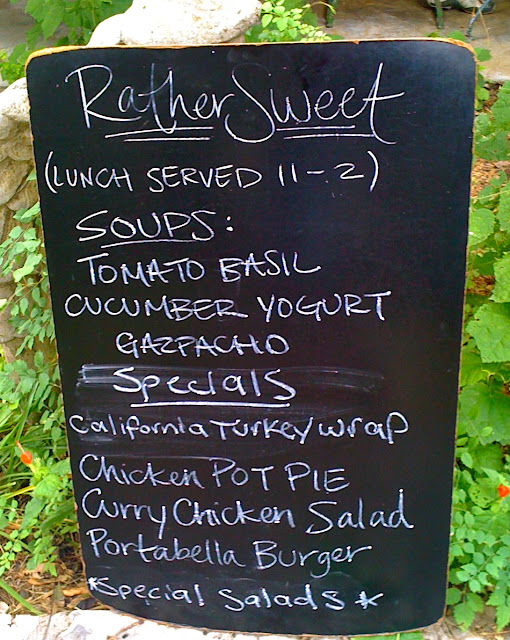 Rather Sweet
(LUNCH SERVED 11-2)
SOUPS:
TOMATO BASIL
CUCUMBER YOGURT
GAZPACHO
Specials
California Turkey wrap
Chicken POT PIE
Curry Chicken Salad
Portabella Burger
*Special Salads*